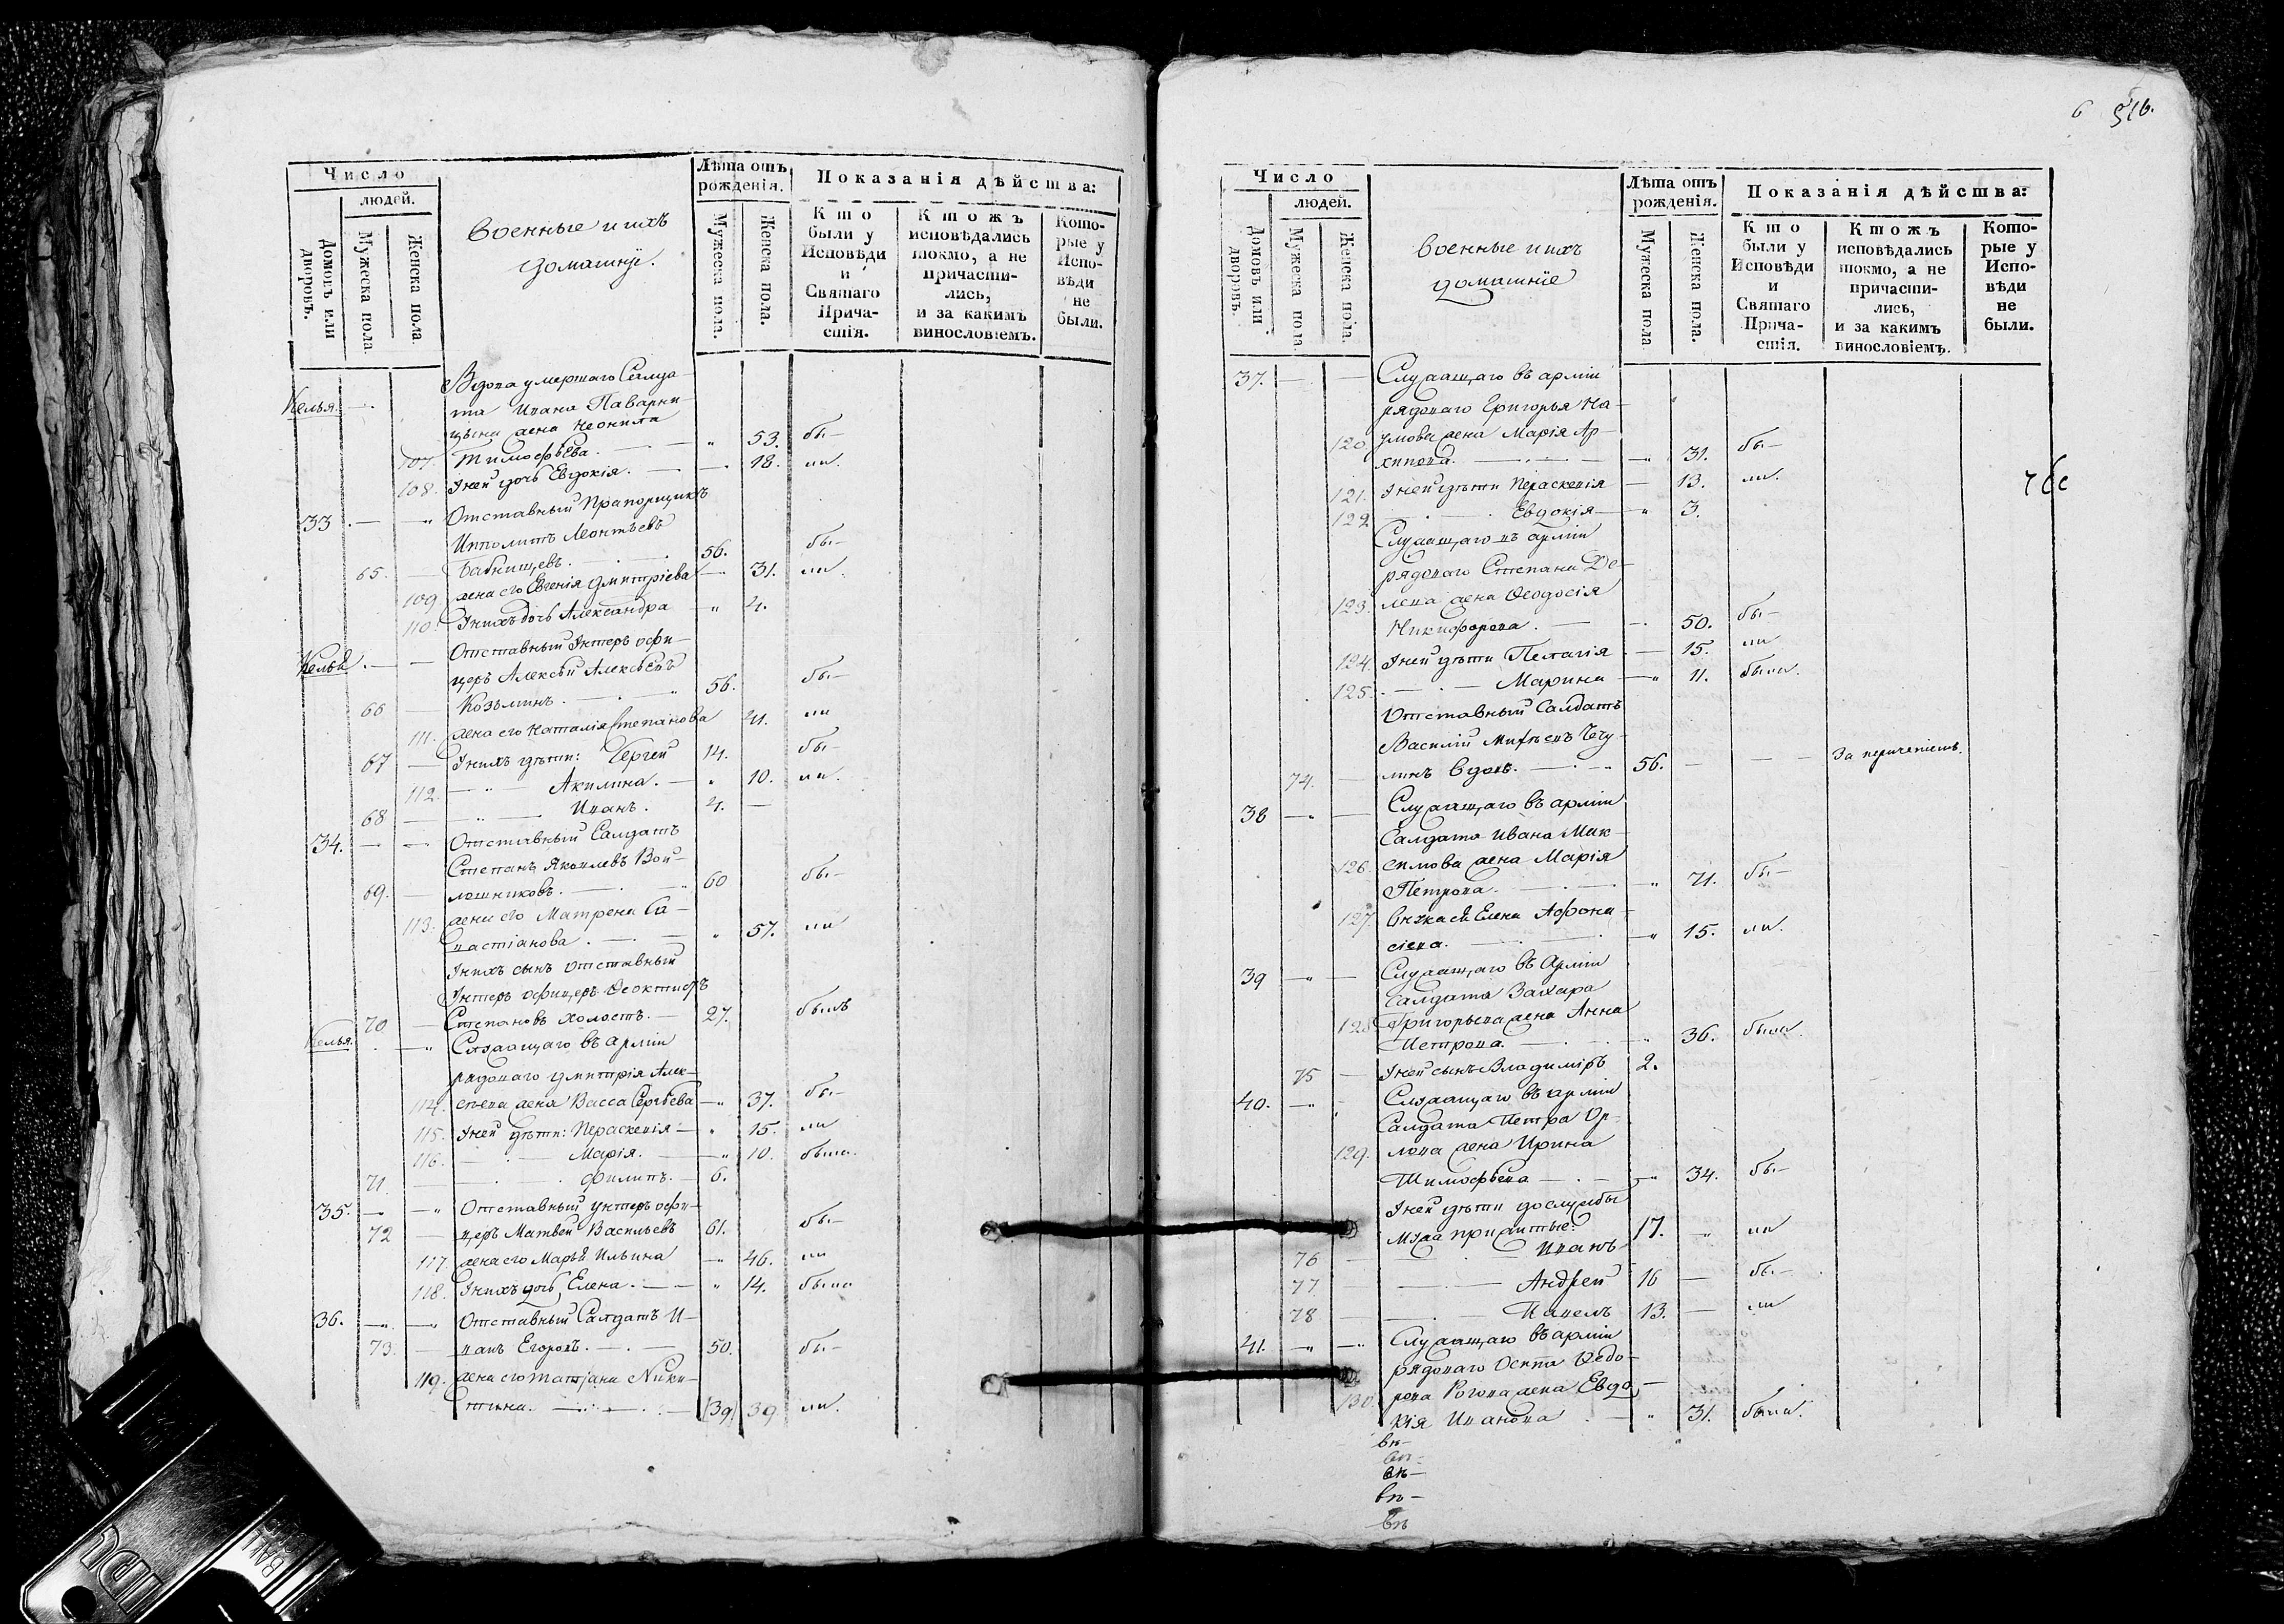 Число
людей.
Домовъ или дворовъ.
Мужеска пола
Женска пола
Военные и ихъ
домашнїе.
Лѣта отъ рожденія.
Мужеска пола.
Женска пола.
Показанія дѣйства:
Кто были у Исповѣди и Святаго Прича-стія.
Ктожъ исповѣдались токмо, а не причасти-лись, и за какимъ винословіемъ.
Кото-рые у Испо-вѣди не были.
Вдова умершаго Салда-
Келья. та Ивана Паварни-
цына жена Неонила
107. Тимофѣева. 53. бы-
108. У ней дочь Евдокія. 18. ли.
33 Отставный Прапорщикъ
Ипполитъ Леонтьевъ
65. Бабнищевъ. 56. бы-
109 жена его Евгенія Дмитріева 31. ли.
110. У нихъ дочь Александра 4.
Келья. Отставный Унтеръ офи-
церъ Алексѣй Алексѣевъ
66 Козьминъ. 56. бы-
111. жена его Наталія Степанова 41. ли
67 У нихъ дѣти: Сергей 14. бы-
112. Акилина. 10. ли.
68 Иванъ. 4.
34. Отставный Салдатъ
Степанъ Яковлевъ Вой-
69. лошниковъ. 60 бы-
113. жена его Матрена Са-
вастіанова. 57. ли
У нихъ сынъ отставный
Унтеръ офицеръ Феоктистъ
70 Степановъ холостъ. 27. былъ
Келья. Служащаго въ арміи
рядоваго Дмитрія Алек-
114. сѣева жена Васса Сергѣева 37. бы-
115. У ней дѣти: Параскевія 15. ли
116. Марія. 10. была.
71 Филипъ. 6.
35. Отставный унтеръ офи-
72 церъ Матвей Васильевъ 61. бы-
117. жена его Марья Ильина 46. ли
118. У нихъ дочь Елена. 14. была
36. Отставный Салдатъ И-
73. ванъ Егоровъ. 50. бы-
119. жена его Татjана Ники-
тина. (39) 39 ли.
6 516.
Число
людей.
Домовъ или дворовъ.
Мужеска пола
Женска пола.
Военные и ихъ
домашнїе
Лѣта отъ рожденія.
Мужеска пола
Женска пола.
Показанія дѣйства:
Кто были у Исповѣди и Святаго Прича-стія.
Ктожъ исповѣдались токмо, а не причасти-лись, и за какимъ винословіемъ.
Кото-рые у Испо-вѣди не были.
37. Служащаго въ арміи
рядоваго Григорья На-
120. умова жена Марія Ар-
хипова. 31. бы-
121. У ней дѣти Параскевія 13. ли.
122 Евдокія 3.
Служащаго въ арміи
рядоваго Степана Де-
123. лева жена Феодосія
Никифорова. 50. бы-
124. У ней дѣти Пелагія 15. ли
125. Марина 11. была.
Отставный Салдатъ
Василій Михѣевъ Чечу-
74. линъ вдовъ. 56. За неимѣніемъ.
38 Служащаго въ арміи
Салдата Ивана Мак-
126. симова жена Марія
Петрова. 71. бы-
127. Внука ея Елена Афона-
сіева. 15. ли.
39 Служащаго въ Арміи
Салдата Захара
128 Григорьева жена Анна
Петрова. 36. была.
75 У ней сынъ Владиміръ 2.
40. Служащаго въ арміи
Салдата Петра Ор-
129. лова жена Ирина
Тимофѣева 34. бы-
У ней дѣти до службы
мужа прижитые:
76 Иванъ 17. ли
77 Андрей 16 бы-
78 Павелъ 13. ли
41. Служащаго въ арміи
рядоваго Осипа Федо-
130. рова Рогова жена Евдо-
кія Иванова 31. была.
вѣ-
вѣ-
вѣ-
вѣ-
вѣ